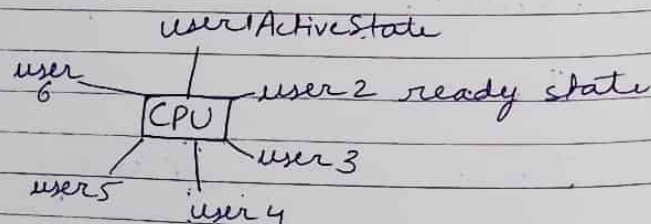 user1ActiveState
user 6
user 2 ready state
CPU
user 3
user 5
user 4